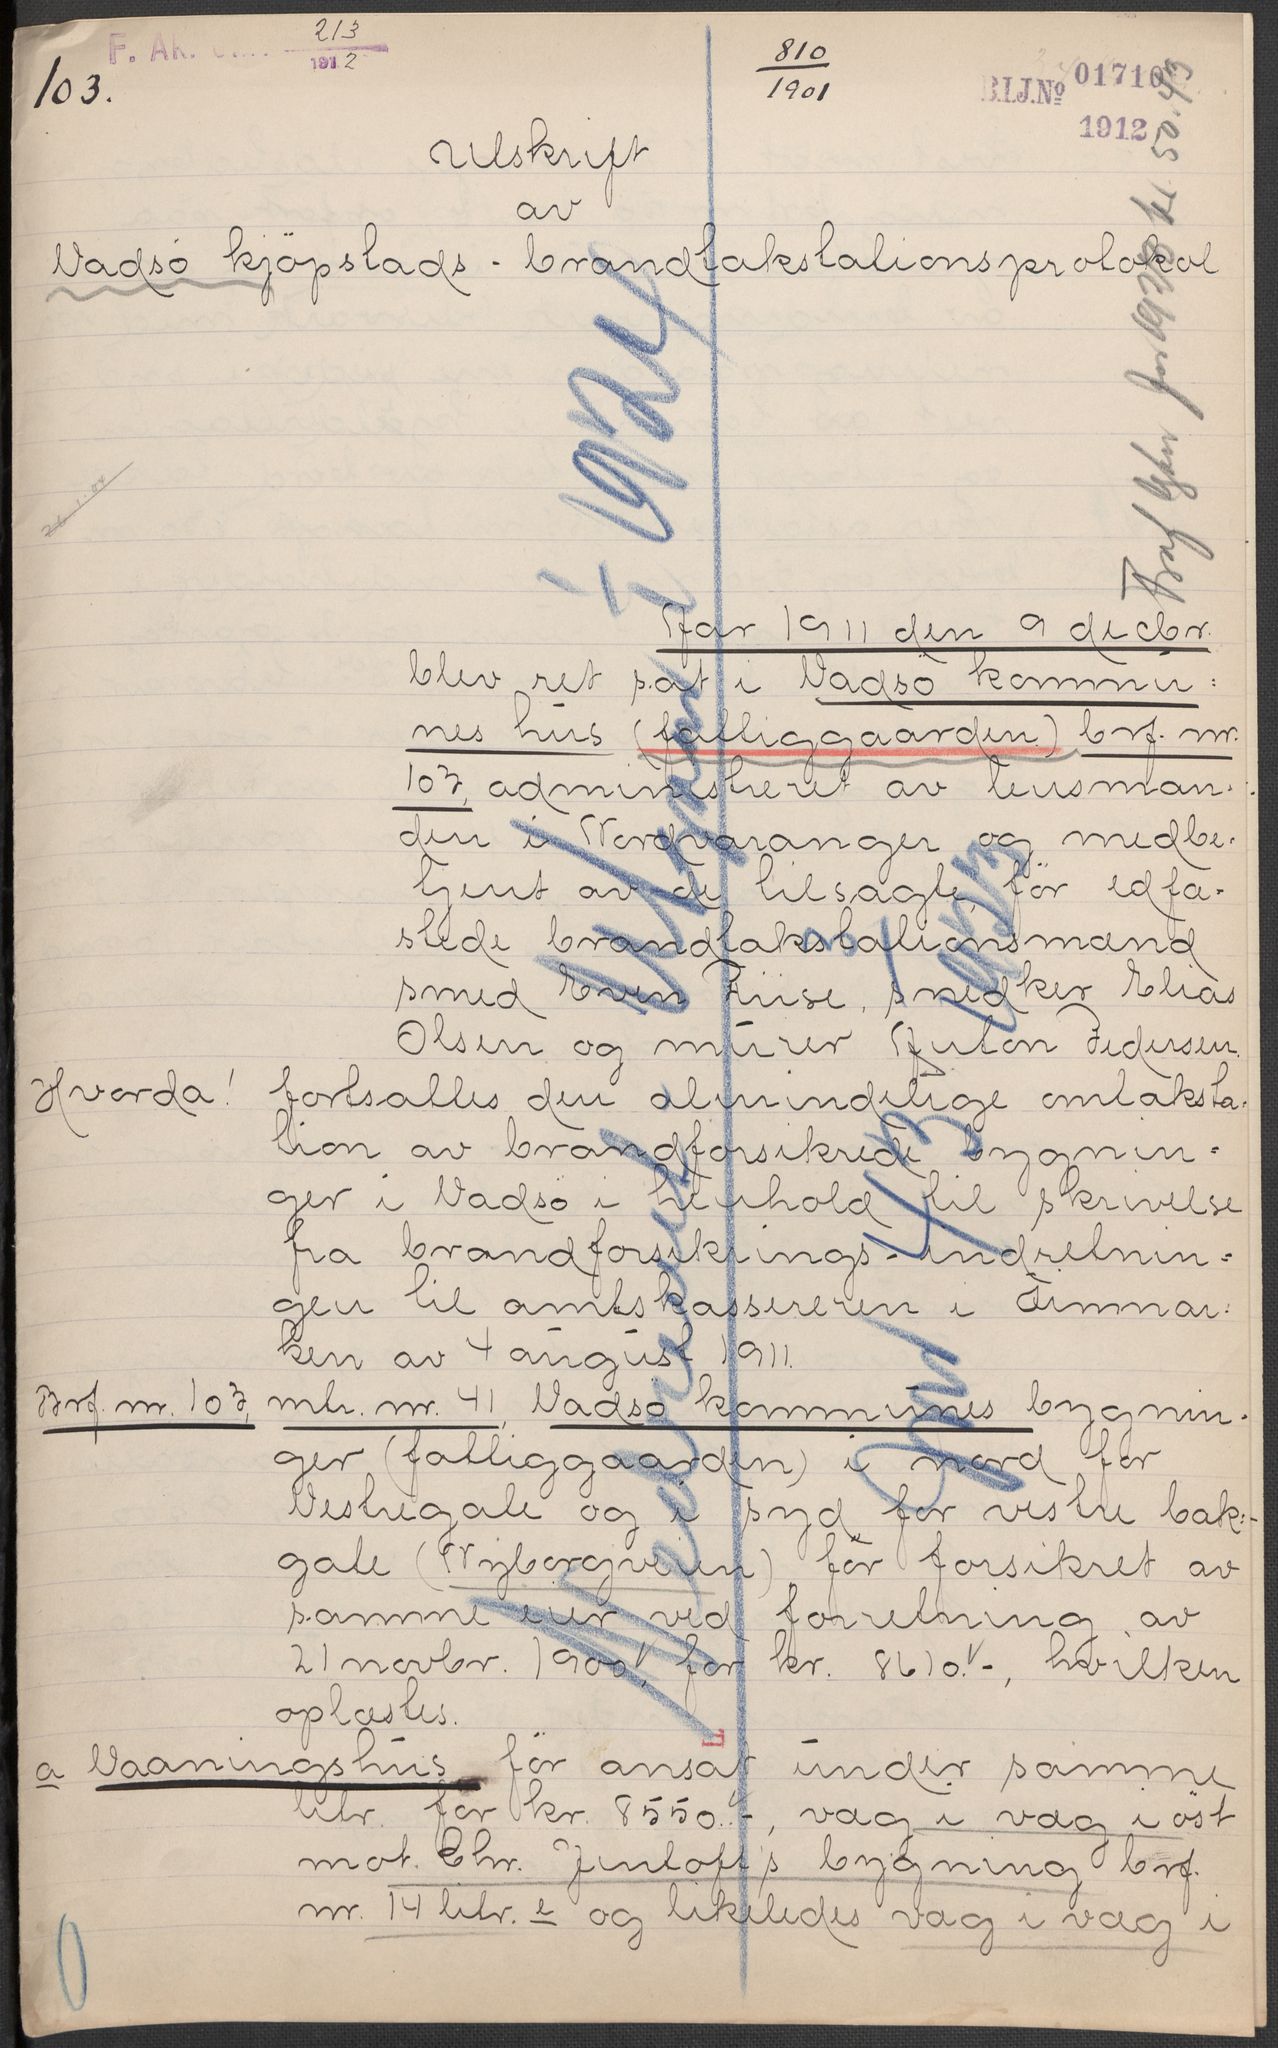 F. AR.
213
1912
103.
810
1901
B.I.J.No 01710
1912
Utskrift
av
Vadsö kjöpstads-brandtakstationsprotokol
i 1924
for 1923 kr. 50.43
Aar 1911 den 9 decbr.
blev ret sat i Vadsö kommu=
nes hus (fattiggaarden) brf. nr.
103, administreret av lensman-
den i Nordvaranger og medbe-
tjent av de tilsagte, för edfæ-
stede brandtakstationsmænd
smed Even Riise, snedker Elias
Olsen og murer Anton Pedersen.
Hvorda! fortsattes den almindelige omtaksta-
tion av brandforsikrede bygnin=
ger i Vadsö i henhold til skrivelse
fra brandforsikrings-indretnin=
gen til amtskassereren i Finmar=
ken av 4 august 1911.
Brf. nr. 103, mtr. nr. 41, Vadsö kommunes bygnin-
ger (fattiggaarden) i nord for
Vestregate og i syd for vestre bak=
gate (Nyborgveien), för forsikret av
samme eier ved forretning av
21 novbr. 1900, for kr. 8610.-, hvilken
oplæstes.
a Vaaningshus för ansat under samme
litr. for kr. 8550.-, væg i væg i öst
mot Chr. Jentoft's bygning brf.
nr. 14 litr. e og likeledes væg i væg i